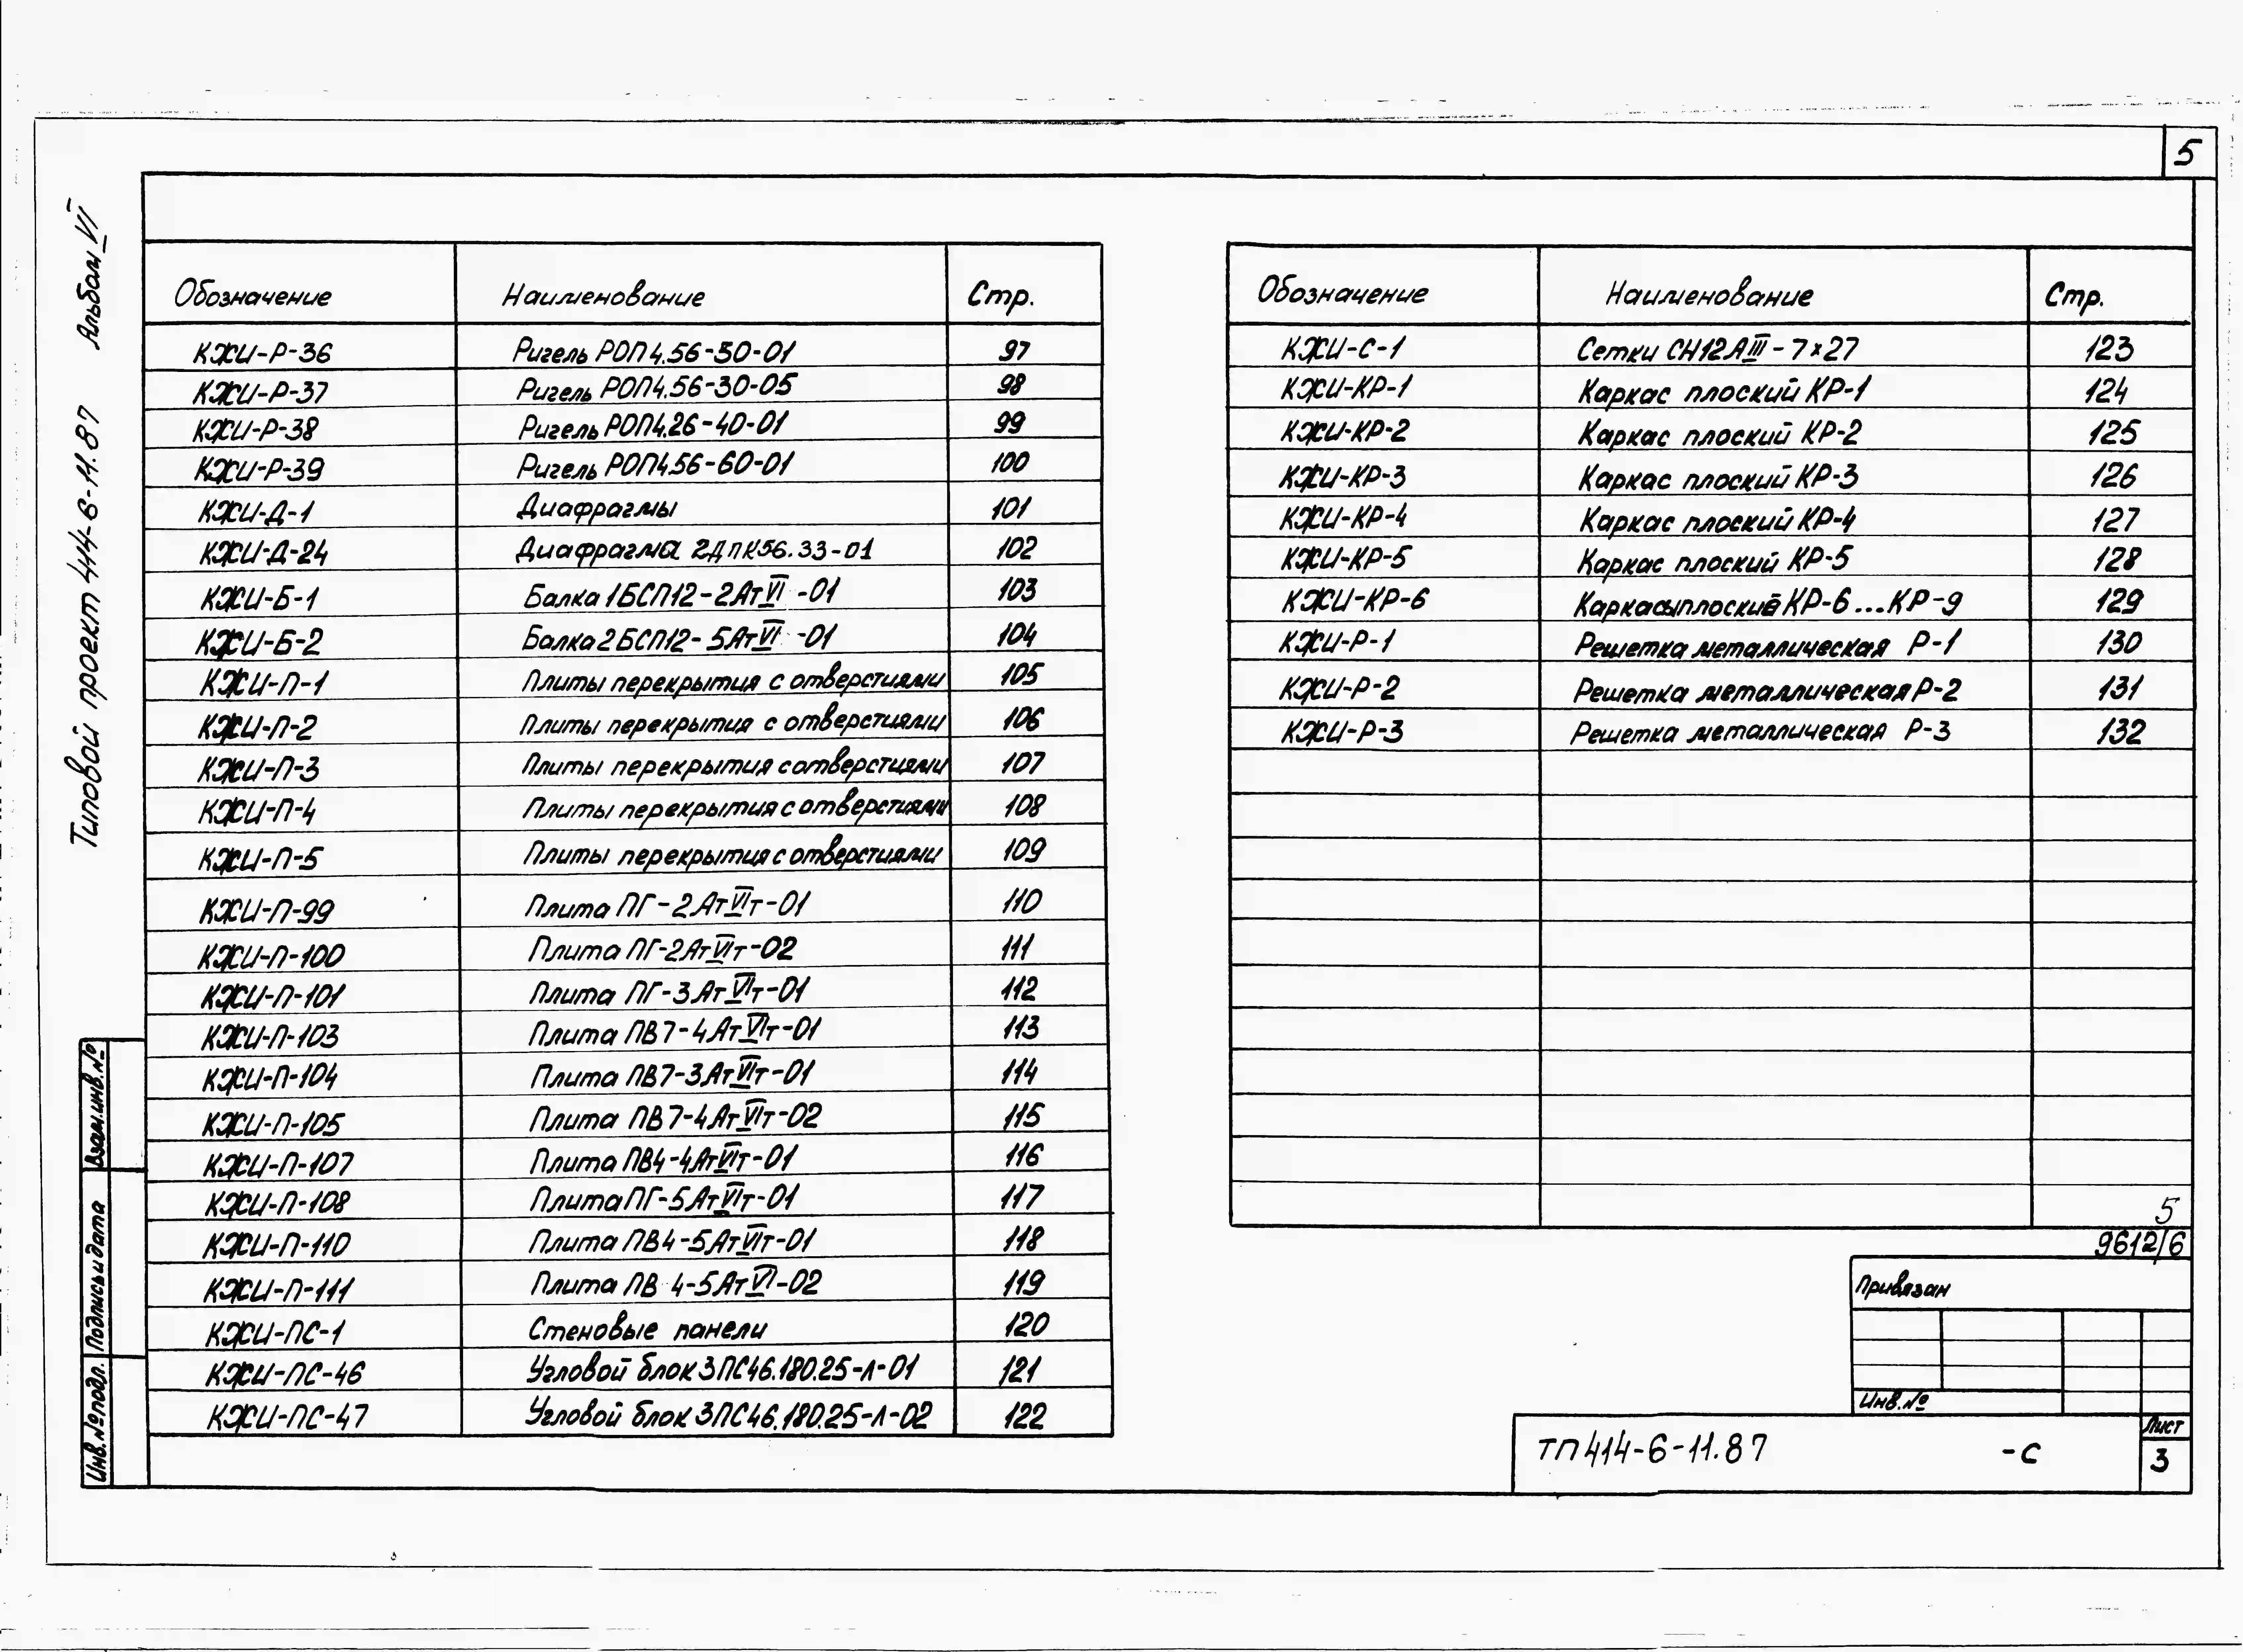 5
Типовой проект 414-6-11.87 Альбом VI
Обозначение Наименование Стр.
КЖИ-Р-36 Ригель РОП4.56-50-01 97
КЖИ-Р-37 Ригель РОП4.56-30-05 98
КЖИ-Р-38 Ригель РОП4.26-40-01 99
КЖИ-Р-39 Ригель РОП4.56-60-01 100
КЖИ-Д-1 Диафрагмы 101
КЖИ-Д-24 Диафрагма 2ДПК56.33-01 102
КЖИ-Б-1 Балка 1БСП12-2АтVI-01 103
КЖИ-Б-2 Балка 2БСП12-5АтVI-01 104
КЖИ-П-1 Плиты перекрытия с отверстиями 105
КЖИ-П-2 Плиты перекрытия с отверстиями 106
КЖИ-П-3 Плиты перекрытия с отверстиями 107
КЖИ-П-4 Плиты перекрытия с отверстиями 108
КЖИ-П-5 Плиты перекрытия с отверстиями 109
КЖИ-П-99 Плита ПГ-2АтVIт-01 110
КЖИ-П-100 Плита ПГ-2АтVIт-02 111
КЖИ-П-101 Плита ПГ-3АтVIт-01 112
КЖИ-П-103 Плита ПВ7-4АтVIт-01 113
КЖИ-П-104 Плита ПВ7-3АтVIт-01 114
КЖИ-П-105 Плита ПВ7-4АтVIт-02 115
КЖИ-П-107 Плита ПВ4-4АтVIт-01 116
КЖИ-П-108 Плита ПГ-5АтVIт-01 117
КЖИ-П-110 Плита ПВ4-5АтVIт-01 118
КЖИ-П-111 Плита ПВ 4-5АтVI-02 119
КЖИ-ПС-1 Стеновые панели 120
КЖИ-ПС-46 Угловой блок 3ПС46.180.25-Л-01 121
КЖИ-ПС-47 Угловой блок 3ПС46.180.25-Л-02 122
Обозначение Наименование Стр.
КЖИ-С-1 Сетки СН12АIII-7×27 123
КЖИ-КР-1 Каркас плоский КР-1 124
КЖИ-КР-2 Каркас плоский КР-2 125
КЖИ-КР-3 Каркас плоский КР-3 126
КЖИ-КР-4 Каркас плоский КР-4 127
КЖИ-КР-5 Каркас плоский КР-5 128
КЖИ-КР-6 Каркасы плоские КР-6...КР-9 129
КЖИ-Р-1 Решетка металлическая Р-1 130
КЖИ-Р-2 Решетка металлическая Р-2 131
КЖИ-Р-3 Решетка металлическая Р-3 132
5
9612/6
Привязан
Инв.№
ТП 414-6-11.87 -С
Лист
3
Взам.инв.№
Подпись и дата
Инв.№ подл.